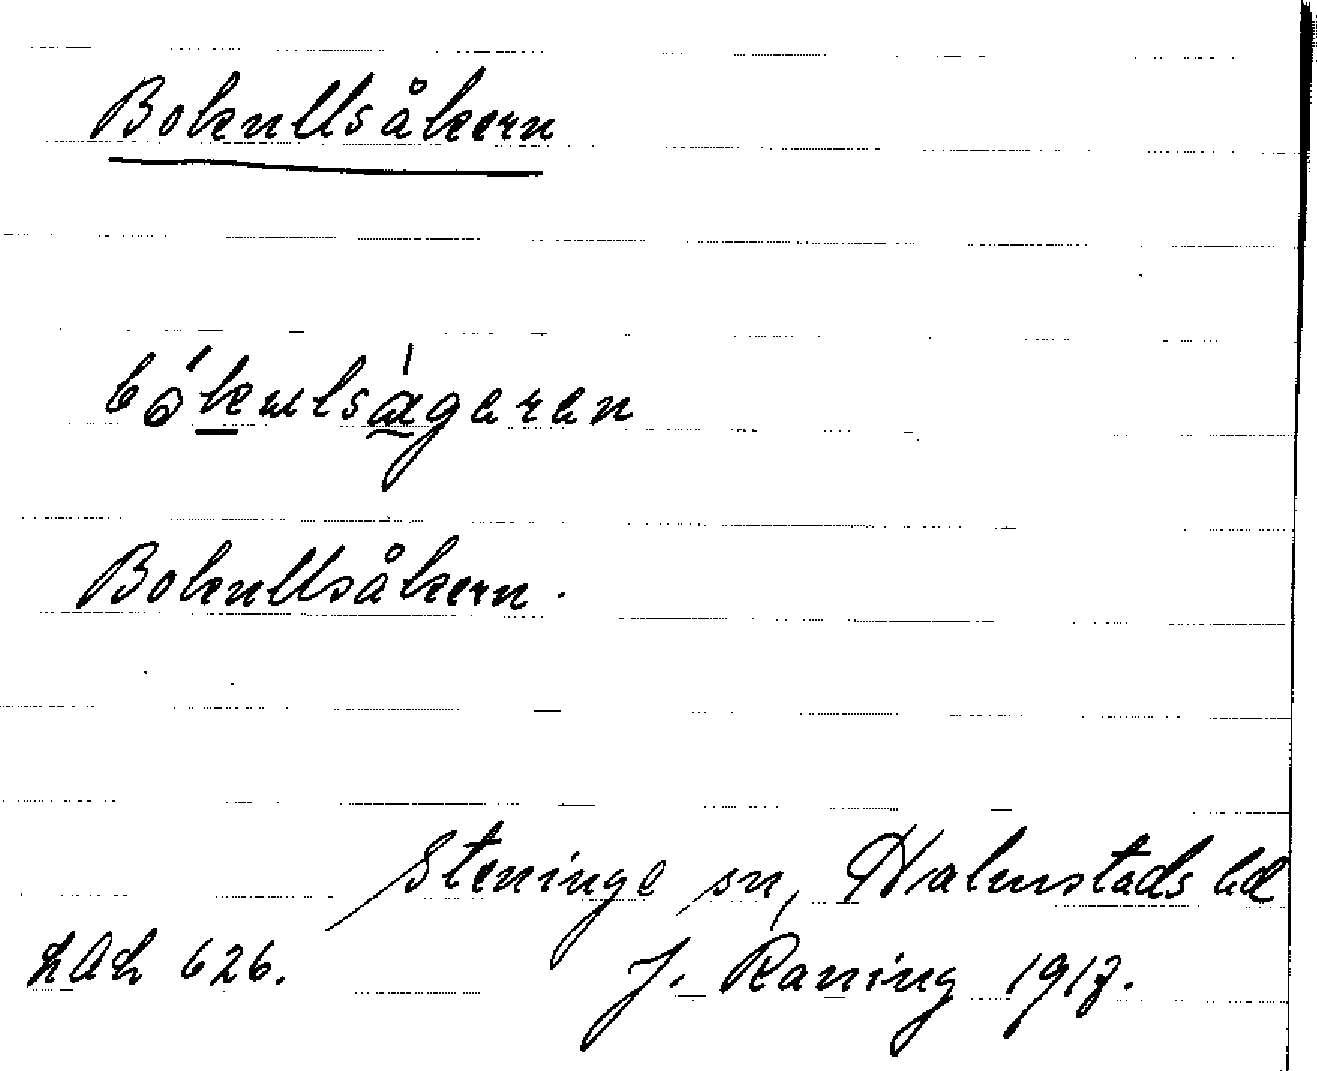 Bokullsåkern
bókulsàgeren
Bokullsåkern.
Steninge sn, Halmstads hd
LAL 626. J. Raning 1917.